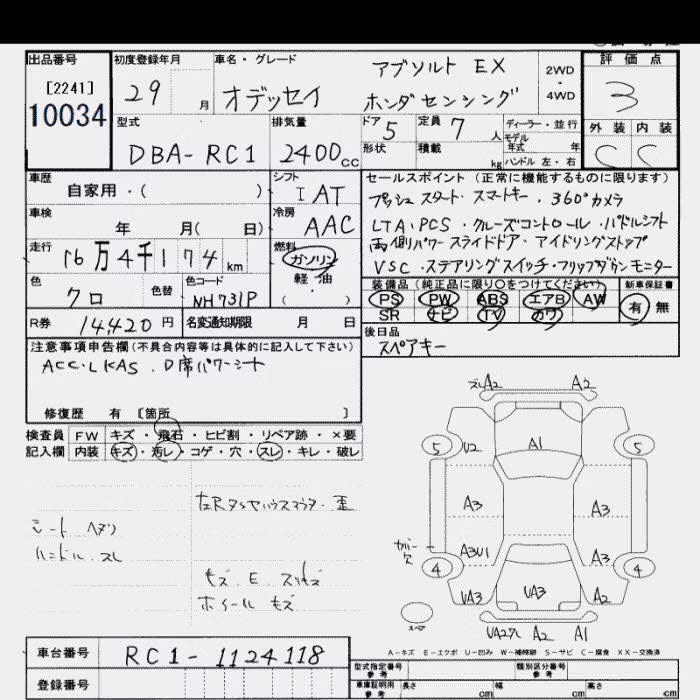 出品番号 初度登録年月 車名・グレード 評価点
[2241]
10034
29 月 オデッセイ アブソルト EX ホンダセンシング 2WD・4WD 3
型式 排気量 ドア 5 定員 7人 ディーラー・並行 外装 内装
モデル年式 年
DBA-RC1 2400cc 形状 積載 kg ハンドル 左・右 C C
車歴 シフト セールスポイント (正常に機能するものに限ります)
自家用・( ) I AT プッシュスタート・スマートキー・360°カメラ
車検 冷房 LTA・PCS・クルーズコントロール・パドルシフト
年 月( 日) AAC 両側パワースライドドア・アイドリングストップ
走行 16万4千174km 燃料 ガソリン VSC・ステアリングスイッチ・フリップダウンモニター
軽油
( )
色 クロ 色替 色コード NH731P
装備品 (純正品に限り○をつけてください) 新車保証書
PS PW ABS エアB AW 有 無
SR ナビ TV カワ
R券 14,420円 名変通知期限 月 日
後日品
スペアキー
注意事項申告欄(不具合内容等は具体的に記入して下さい)
ACC・LKAS・D席パワーシート
修復歴 有 〔箇所 〕
検査員 FW キズ・飛石・ヒビ割・リペア跡・×要
記入欄 内装 キズ・汚レ・コゲ・穴・スレ・キレ・破レ
左Rタイヤハウス 歪
シート ヘタリ
ハンドル スレ
キズ E スリキズ
ホイール キズ
A2 A2
5 U2 A1 5
A3 A3
A3U1 A3
4 4
UA3 UA3 A2
スペア
A2 A1
A-キズ E-エクボ U-凹み W-補修跡 S-サビ C-腐食 XX-交換済
車台番号 RC1-1124118
登録番号
型式指定番号 参考 類別区分番号 参考
車庫証明用 参考 長さ cm 幅 cm 高さ cm